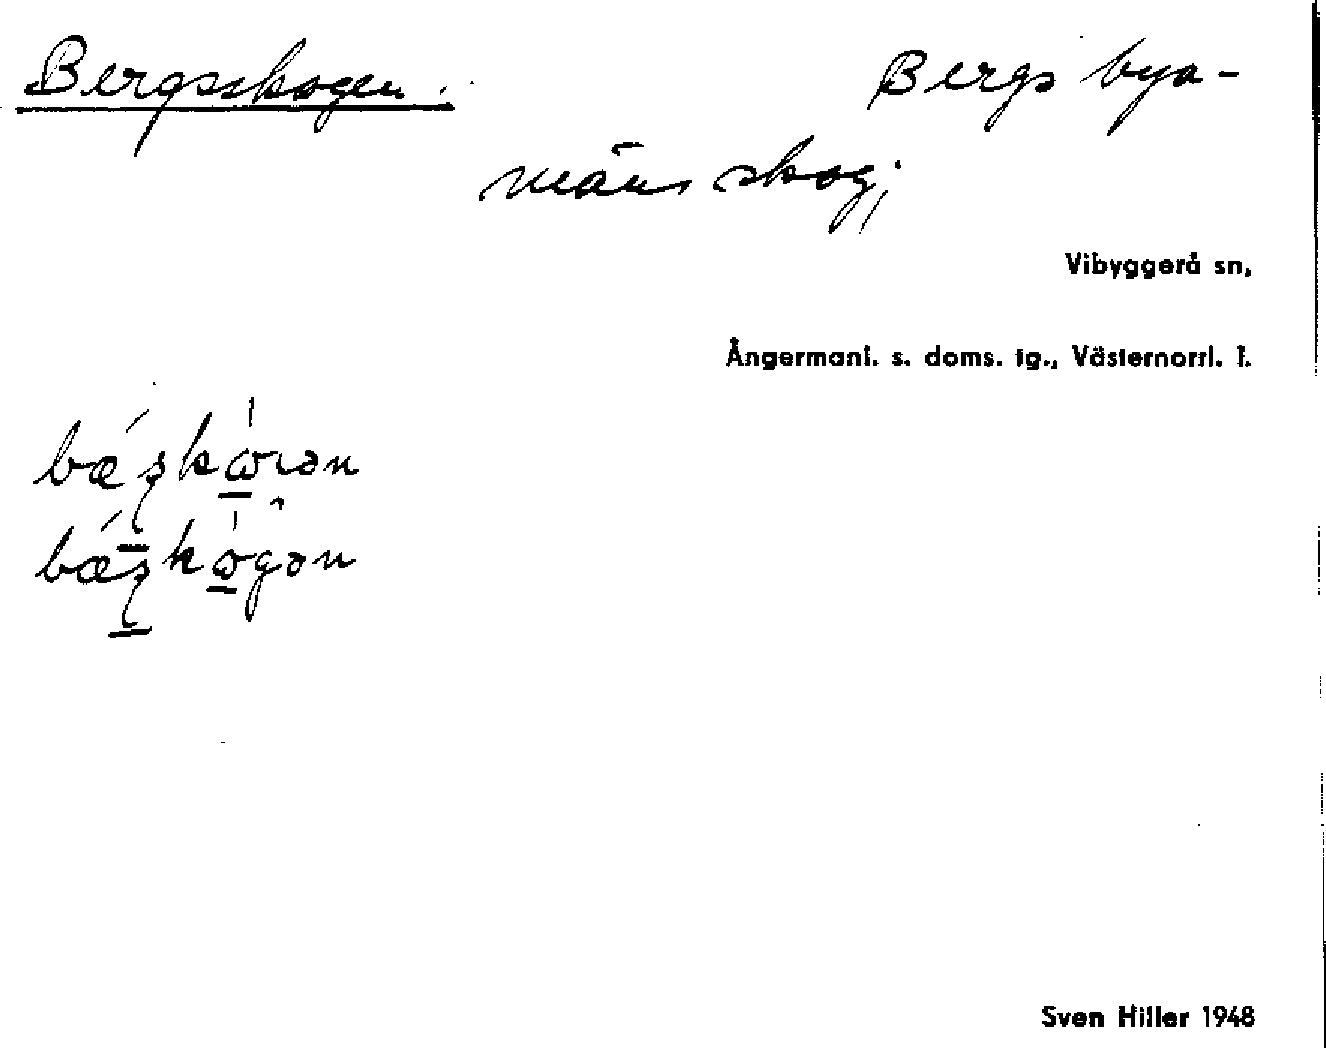 Bergsskogen. Bergs bya-
mäns skog;
Vibyggerå sn,
Ångermanl. s. doms. tg., Västernorrl. l.
Sven Hiller 1948